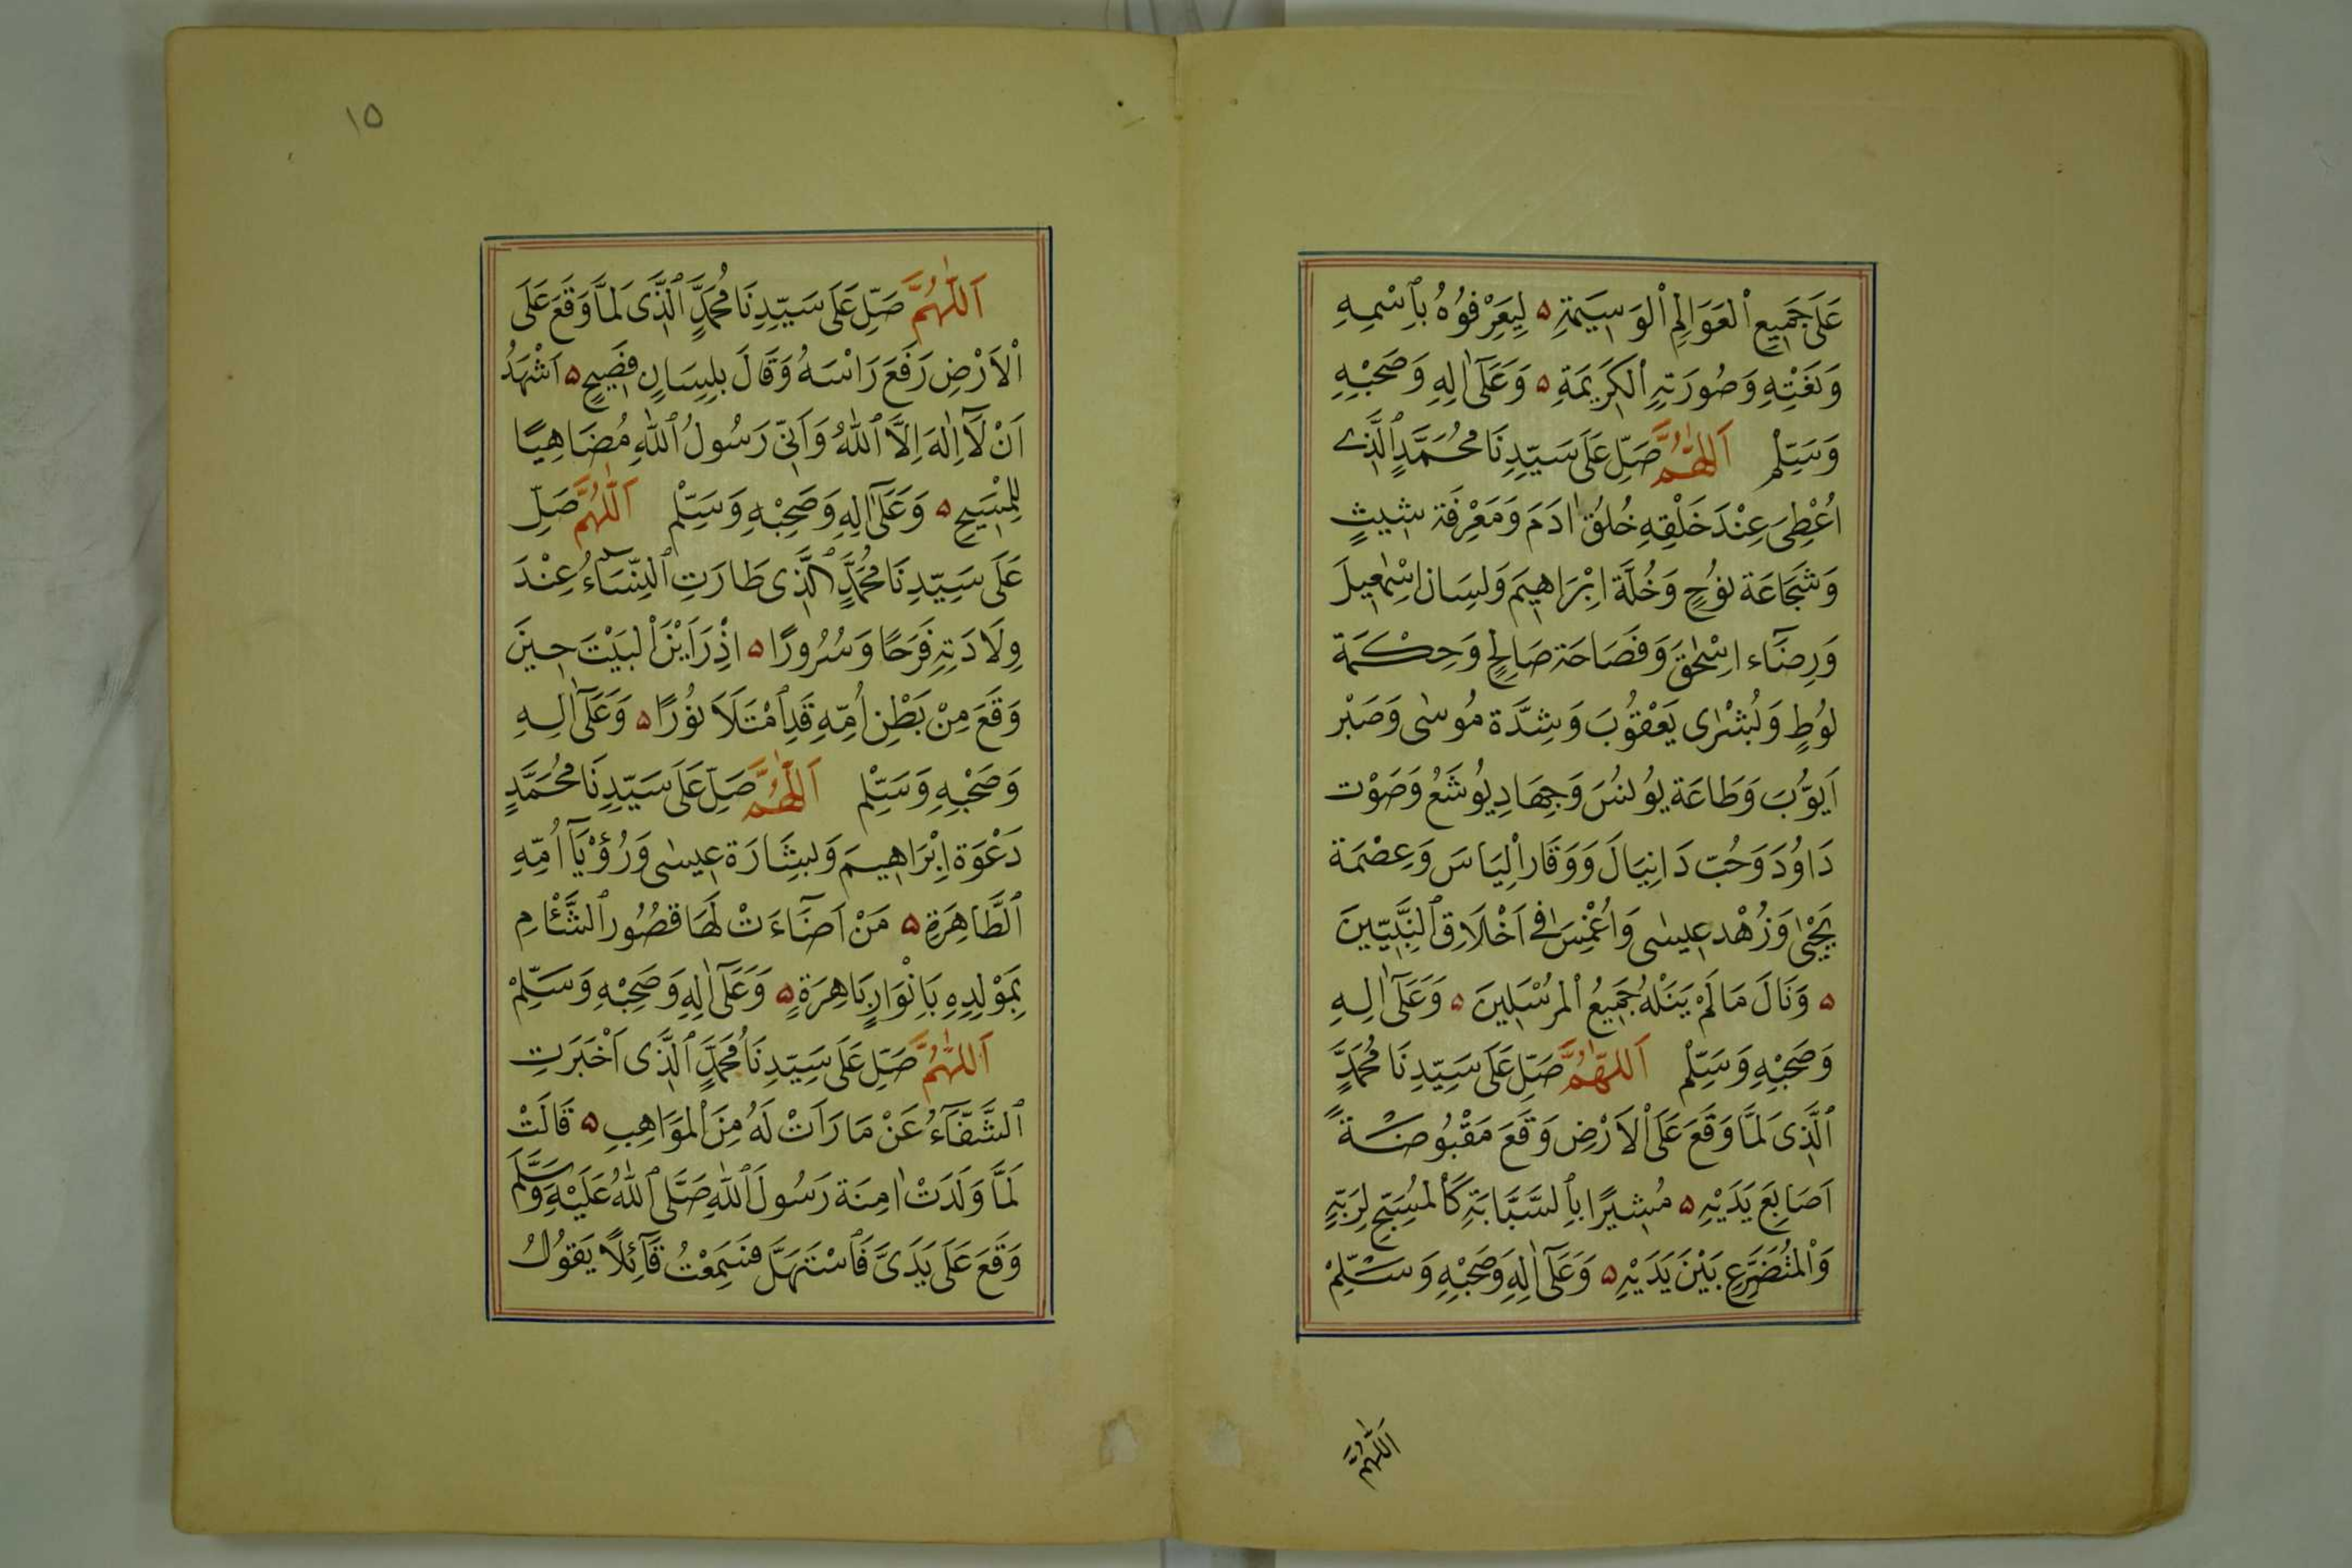 عَلَى جَمِيعِ ٱلْعَوَالِمِ ٱلْوَسِيَمةِ ۵ لِيَعْرِفُوهُ بِٱسْمِهِ
وَنَعْتِهِ وَصُورَتِهِ ٱلْكَرِيمَةِ ۵ وَعَلَىٓ اٰلِهِ وَصَحْبِهِ
وَسَلِّمْ اَللّٰهُمَّ صَلِّ عَلَى سَيِّدِنَا مُحَمَّدٍ ٱلَّذِى
اُعْطِىَ عِنْدَ خَلْقِهِ خُلُقَ اٰدَمَ وَمَعْرِفَة شِيثٍ
وَشَجَاعَة نُوُحٍ وَخُلَّة اِبْرَاهِيمَ وَلِسَان اِسْمٰعِيلَ
وَرِضَآء اِسْحٰقَ وَفَصَاحَة صَالِحٍ وَحِكْمَة
لُوُطٍ وَبُشْرٰى يَعْقُوُبَ وَشِدَّة مُوسٰى وَصَبْر
اَيُّوُبَ وَطَاعَة يُوُنُسَ وَجِهَادِ يُوُشَعُ وَصَوْت
دَاوُدَ وَحُبّ دَانِيَالَ وَوَقَار اِلْيَاسَ وَعِصْمَة
يَحْيٰى وَزُهْد عِيسٰى وَاُغْمِسَ فِى اَخْلَاقِ ٱلنَّبِيّيِنَ
۵ وَنَالَ مَا لَمْ يَنَلْهُ جَمِيعُ ٱلْمُرْسَلِينَ ۵ وَعَلَىٓ اٰلِهِ
وَصَحْبِهِ وَسَلِّمْ اَللّٰهُمَّ صَلِّ عَلَى سَيِّدِنَا مُحَمَّدٍ
ٱلَّذِى لَمَّا وَقَعَ عَلَى ٱلْاَرْضِ وَقَعَ مَقْبُوضَةً
اَصَابِعَ يَدَيْهِ ۵ مُشِيرًا بِٱلسَّبَّابَةِ كَٱلْمُسَبِّحِ لِرَبِّهِ
وَٱلْمُتَضَرِّعِ بَيْنَ يَدَيْهِ ۵ وَعَلَىٓ اٰلِهِ وَصَحْبِهِ وَسَلِّمْ
اَللّٰهُمَّ
١٥
اَللّٰهُمَّ صَلِّ عَلَى سَيِّدِنَا مُحَمَّدٍ ٱلَّذِى لَمَّا وَقَعَ عَلَى
ٱلْاَرْضِ رَفَعَ رَاْسَهُ وَقَالَ بِلِسَانٍ فَصِيحٍ ۵ اَشْهَدُ
اَنْ لَآ اِلٰهَ اِلَّا ٱللّٰهُ وَاَنِّى رَسُولُ ٱللّٰهِ مُضَاهِيًا
لِلْمَسِيحِ ۵ وَعَلَىٓ اٰلِهِ وَصَحْبِهِ وَسَلِّمْ اَللّٰهُمَّ صَلِّ
عَلَى سَيِّدِنَا مُحَمَّدٍ ٱلَّذِى طَارَتِ ٱلنِّسَآءُ عِنْدَ
وِلَادَتِهِ فَرَحًا وَسُرُورًا ۵ اِذْ رَاَيْنَ ٱلْبَيْتَ حِينَ
وَقَعَ مِنْ بَطْنِ اُمِّهِ قَدِ ٱمْتَلَاَ نُوُرًا ۵ وَعَلَىٓ اٰلِهِ
وَصَحْبِهِ وَسَلِّمْ اَللّٰهُمَّ صَلِّ عَلَى سَيِّدِنَا مُحَمَّدٍ
دَعْوَة اِبْرَاهِيمَ وَبِشَارَة عِيسٰى وَرُؤْيَآ اُمِّهِ
ٱلطَّاهِرَةِ ۵ مَنْ اَضَآءَتْ لَهَا قُصُورُ ٱلشَّئَامِ
بِمَوْلِدِهِ بِاَنْوَارٍ بَاهِرَةٍ ۵ وَعَلَىٓ اٰلِهِ وَصَحْبِهِ وَسَلِّمْ
اَللّٰهُمَّ صَلِّ عَلَى سَيِّدِنَا مُحَمَّدٍ ٱلَّذِى اَخْبَرَتِ
ٱلشَّفَّآءُ عَنْ مَا رَاَتْ لَهُ مِنَ ٱلْمَوَاهِبِ ۵ قَالَتْ
لَمَّا وَلَدَتْ اٰمِنَة رَسُولَ ٱللّٰهِ صَلَّى ٱللّٰهُ عَلَيْهِ وَسَلَّمَ
وَقَعَ عَلَى يَدَىَّ فَٱسْتَهَلَّ فَسَمِعْتُ قَآئِلًا يَقُوُلُ